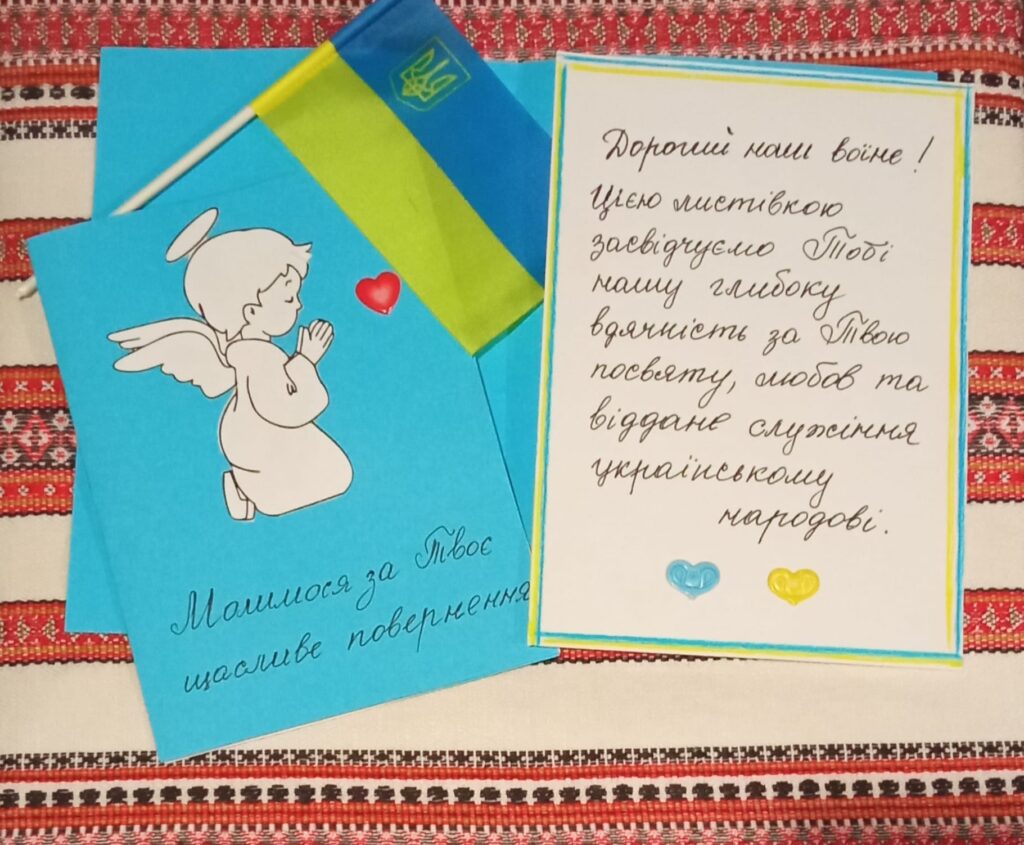 Молимося за Твоє
щасливе повернення
Дорогий наш воїне!
Цією листівкою
засвідчуємо Тобі
нашу глибоку
вдячність за Твою
посвяту, любов та
віддане служіння
українському
народові.